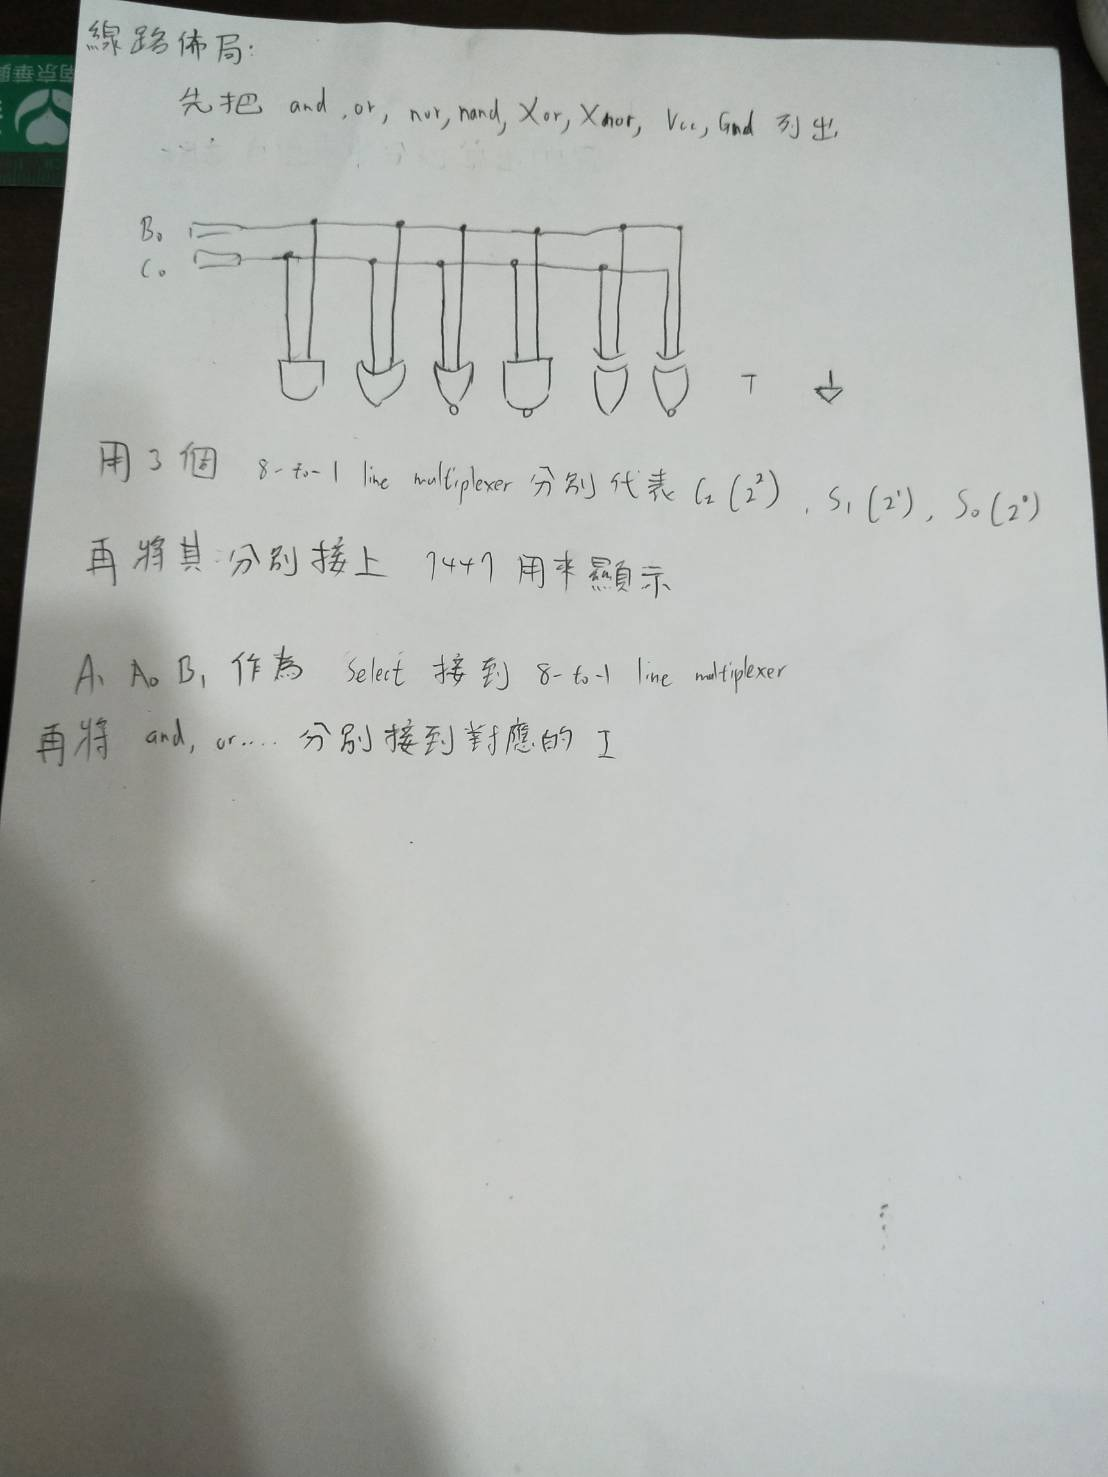 線路佈局:
先把 and, or, nor, nand, Xor, Xnor, Vcc, Gnd 列出
B₀
C₀
用3個 8-to-1 line multiplexer 分別代表 C₂(2²), S₁(2¹), S₀(2⁰)
再將其分別接上 7447 用來顯示
A₁ A₀ B₁ 作為 Select 接到 8-to-1 line multiplexer
再將 and, or.... 分別接到對應的 I